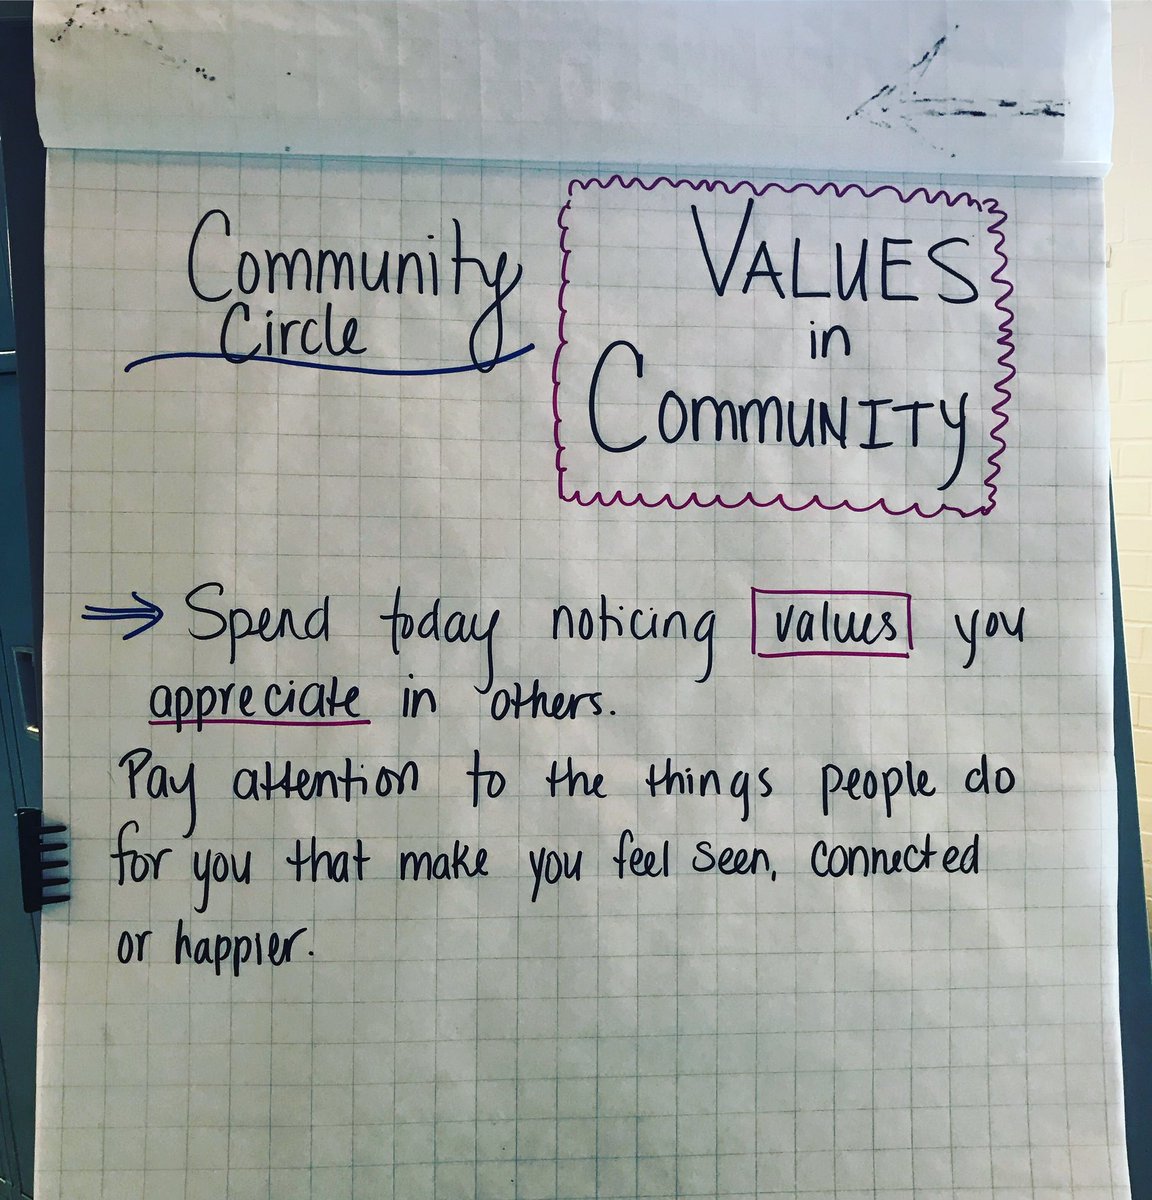 Community
Circle
VALUES
in
COMMUNITY
Spend today noticing values you
appreciate in others.
Pay attention to the things people do
for you that make you feel seen, connected
or happier.